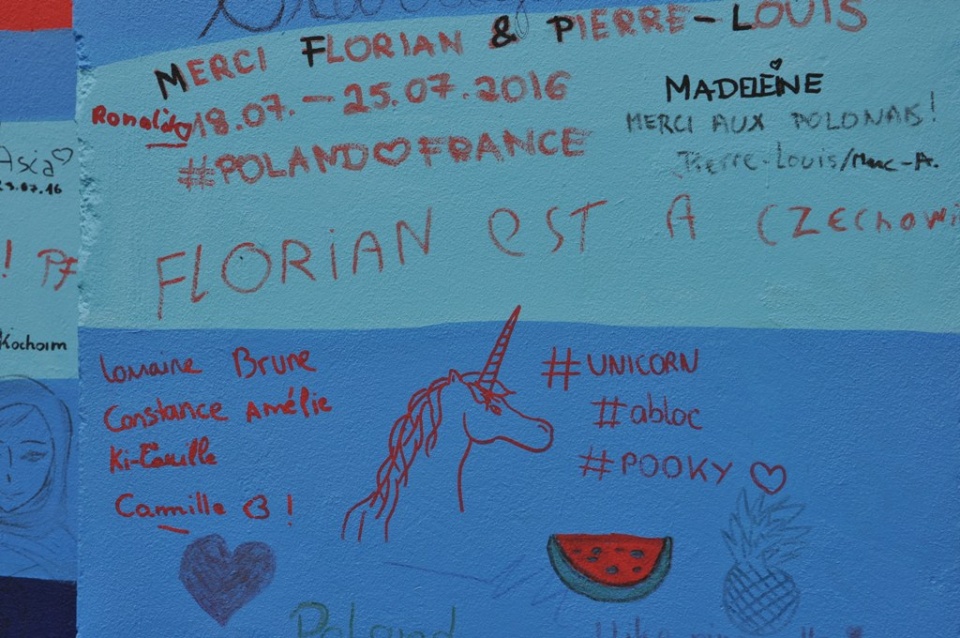 MERCI FLORIAN & PIERRE-LOUIS
Ronaldo 18.07. - 25.07.2016
#POLAND♡FRANCE
MADELEINE
MERCI AUX POLONAIS!
Pierre-Louis/Marc-A.
Asia♡
FLORIAN EST A CZECHOWI
Kochom
Lorraine Brune
Constance Amélie
Camille <3 !
#UNICORN
#abloc
#POOKY ♡
Poland